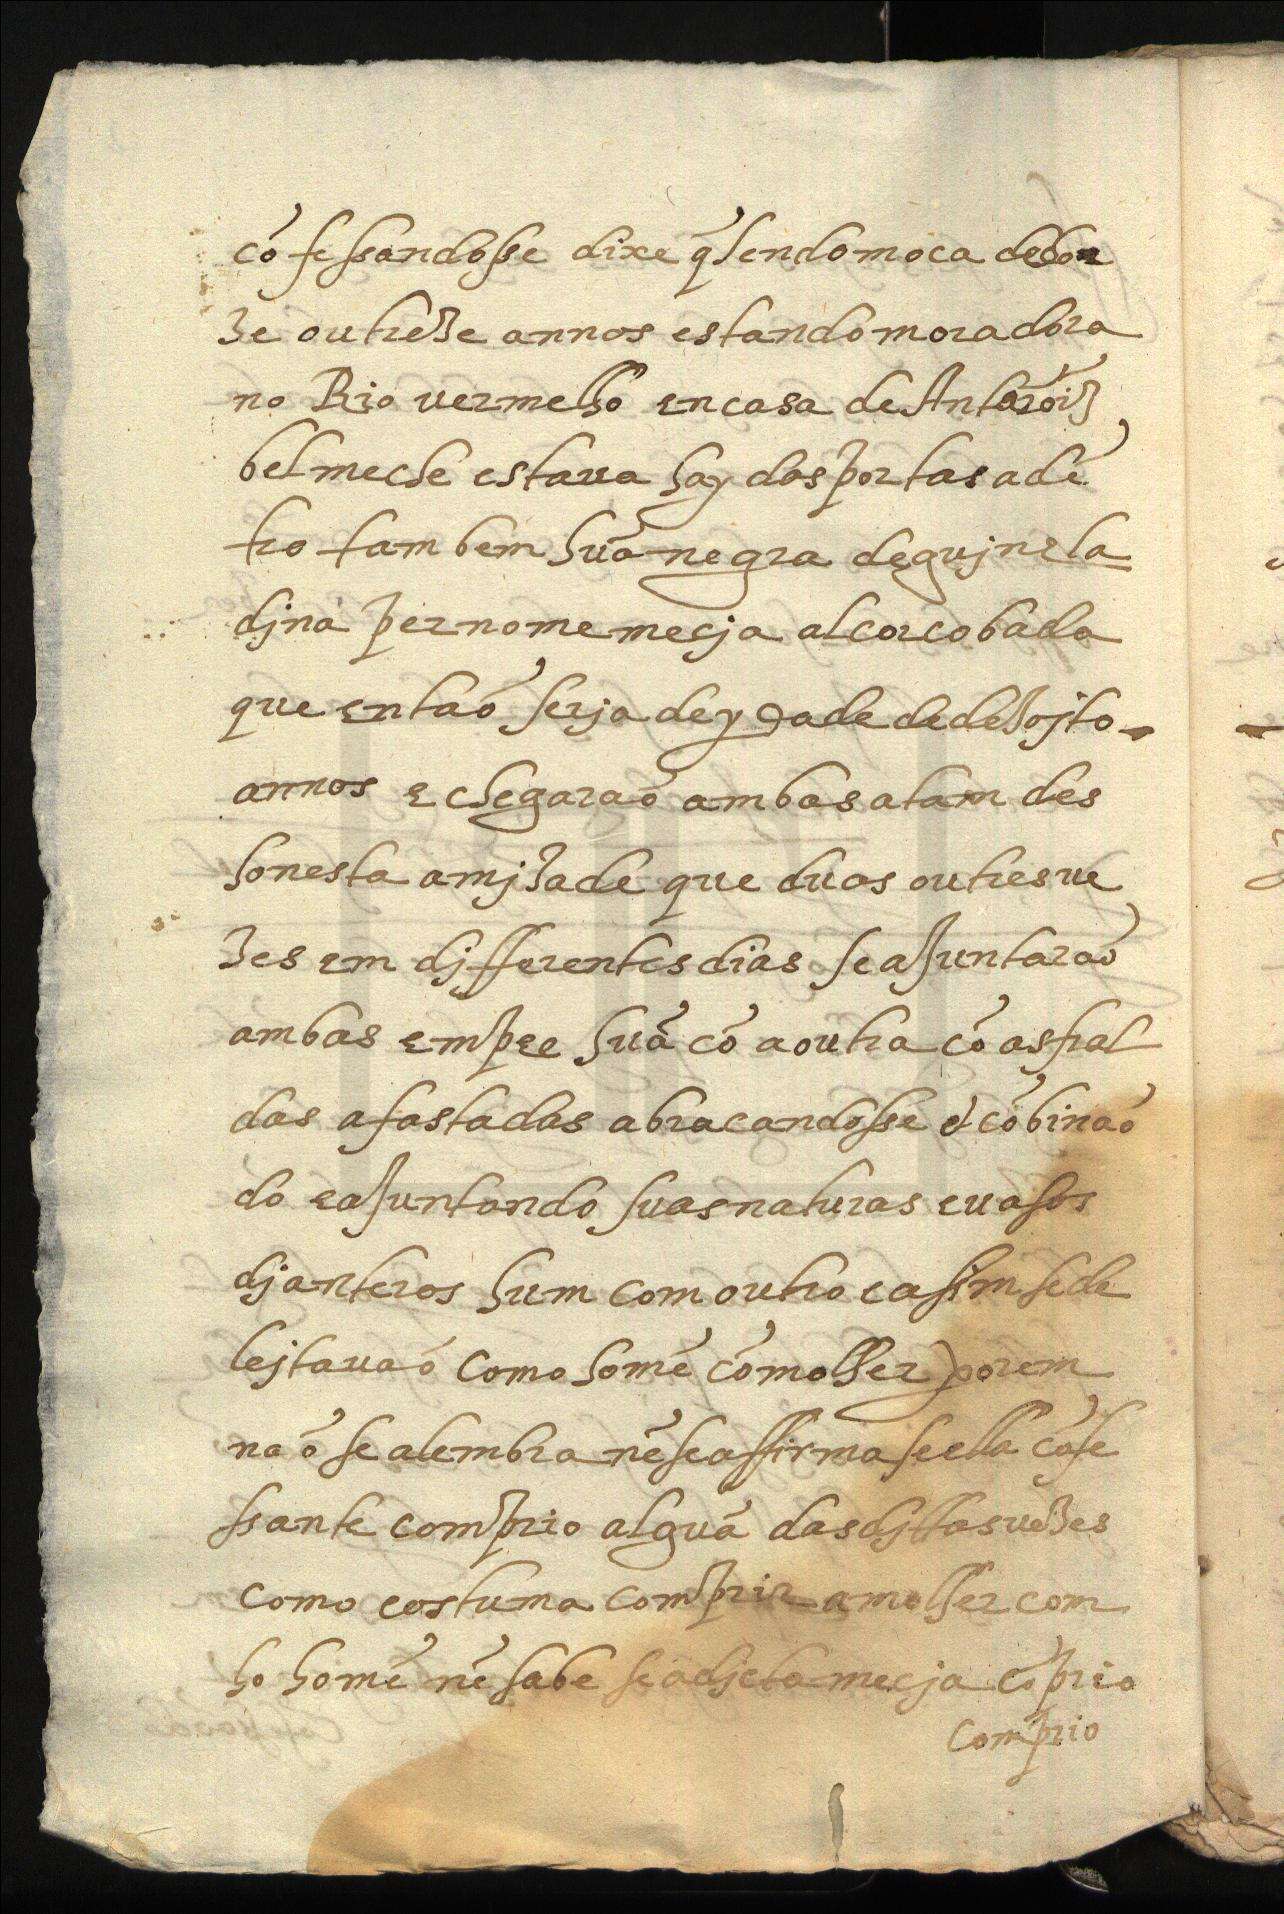 cõfessandosse dixe q̃ sendo moca de don
ze ou treze annos estando moradora
no Rio vermelho en casa de Ant.º roiz
belmeche estava hay das portas adẽ
tro tambem hũa negra de gujne la=
djna per nome mecja alcorcobada
que entaõ serja de ydade de dezojto
annos e chegaraõ ambas a tam des
honesta amjzade que duas ou tres ve
zes em djfferentes dias se ajuntaraõ
ambas em pee hũa cõ a outra cõ as fral
das afastadas abracandosse & cõbinaõ
do e ajuntando suas naturas e vasos
djanteros hum com outro e asim se de
lejtavaõ como homẽ cõ molher) porem
naõ se alembra nẽ se affirma se ella cõfe
ssante comprio algũa das djttas vezes
como costuma comprir a molher com
ho homẽ nẽ sabe se a djcta mecja cõprio
comprio